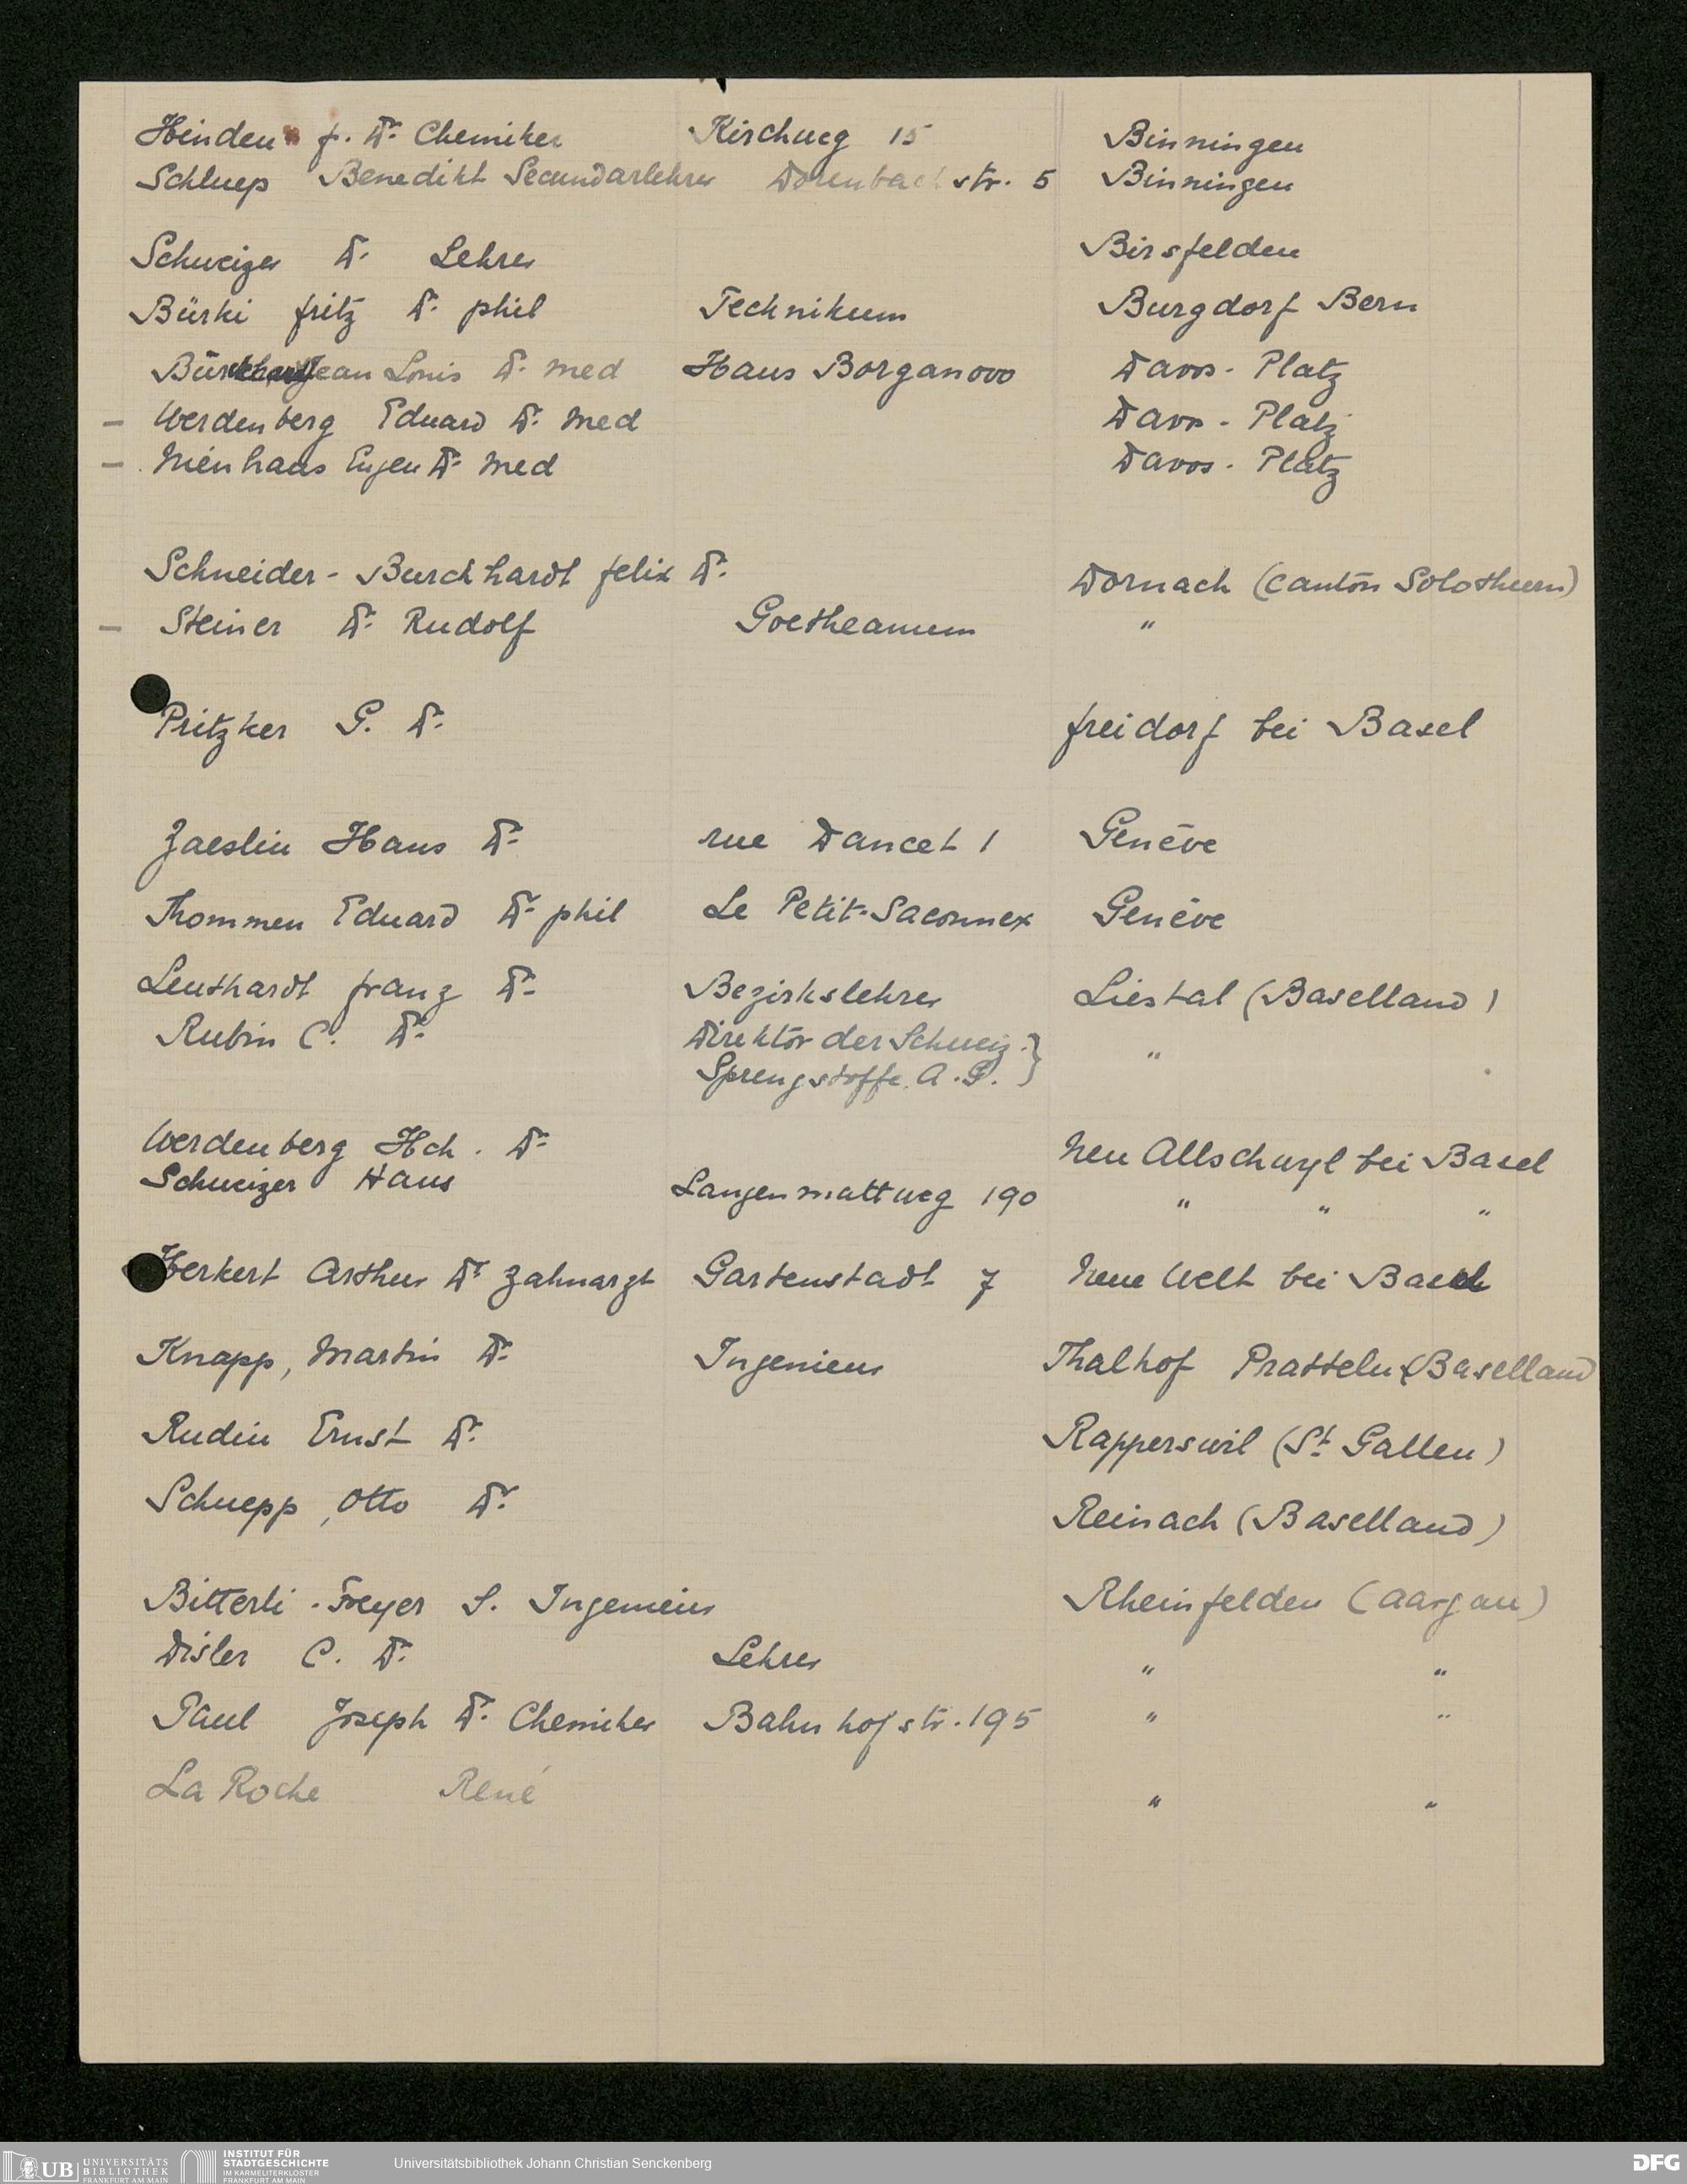 Hinden f. Dr. Chemiker Kirchweg 15 Binningen
Schluep Benedikt Secundarlehrer Dorenbachstr. 5 Binningen
Schweizer Dr. Lehrer Birsfelden
Bürki Fritz Dr. phil Technikum Burgdorf Bern
Jean Louis Dr. med Haus Borganovo Davos-Platz
- Werdenberg Eduard Dr. med Davos-Platz
- Nienhaus Eugen Dr. med Davos-Platz
Schneider-Burckhardt Felix Dr. Dornach (Canton Solothurn)
- Steiner Dr. Rudolf Goetheanum "
Pritzker G. Dr. Freidorf bei Basel
Zaeslin Hans Dr. rue Dancet 1 Genève
Thommen Eduard Dr. phil Le Petit-Saconnex Genève
Leuthardt Franz Dr. Bezirkslehrer Liestal (Baselland)
Rubin C. Dr. Direktor der Schweiz. "
Sprengstoffe A.G.
Werdenberg Hch. Dr. Neu Allschwyl bei Basel
Schweizer Haus Langenmattweg 190 " " "
Herkert Arthur Dr. Zahnarzt Gartenstadt 7 Neue Welt bei Basel
Knapp, Martin Dr. Ingenieur Thalhof Pratteln (Baselland
Rudin Ernst Dr. Rapperswil (St. Gallen)
Schuepp, Otto Dr. Reinach (Baselland)
Bitterli-Freyer S. Ingenieur Rheinfelden (Aargau)
Disler C. Dr. Lehrer " "
Paul Joseph Dr. Chemiker Bahnhofstr. 195 " "
La Roche René " "
UB UNIVERSITÄTS BIBLIOTHEK FRANKFURT AM MAIN
INSTITUT FÜR STADTGESCHICHTE IM KARMELITERKLOSTER FRANKFURT AM MAIN
Universitätsbibliothek Johann Christian Senckenberg
DFG